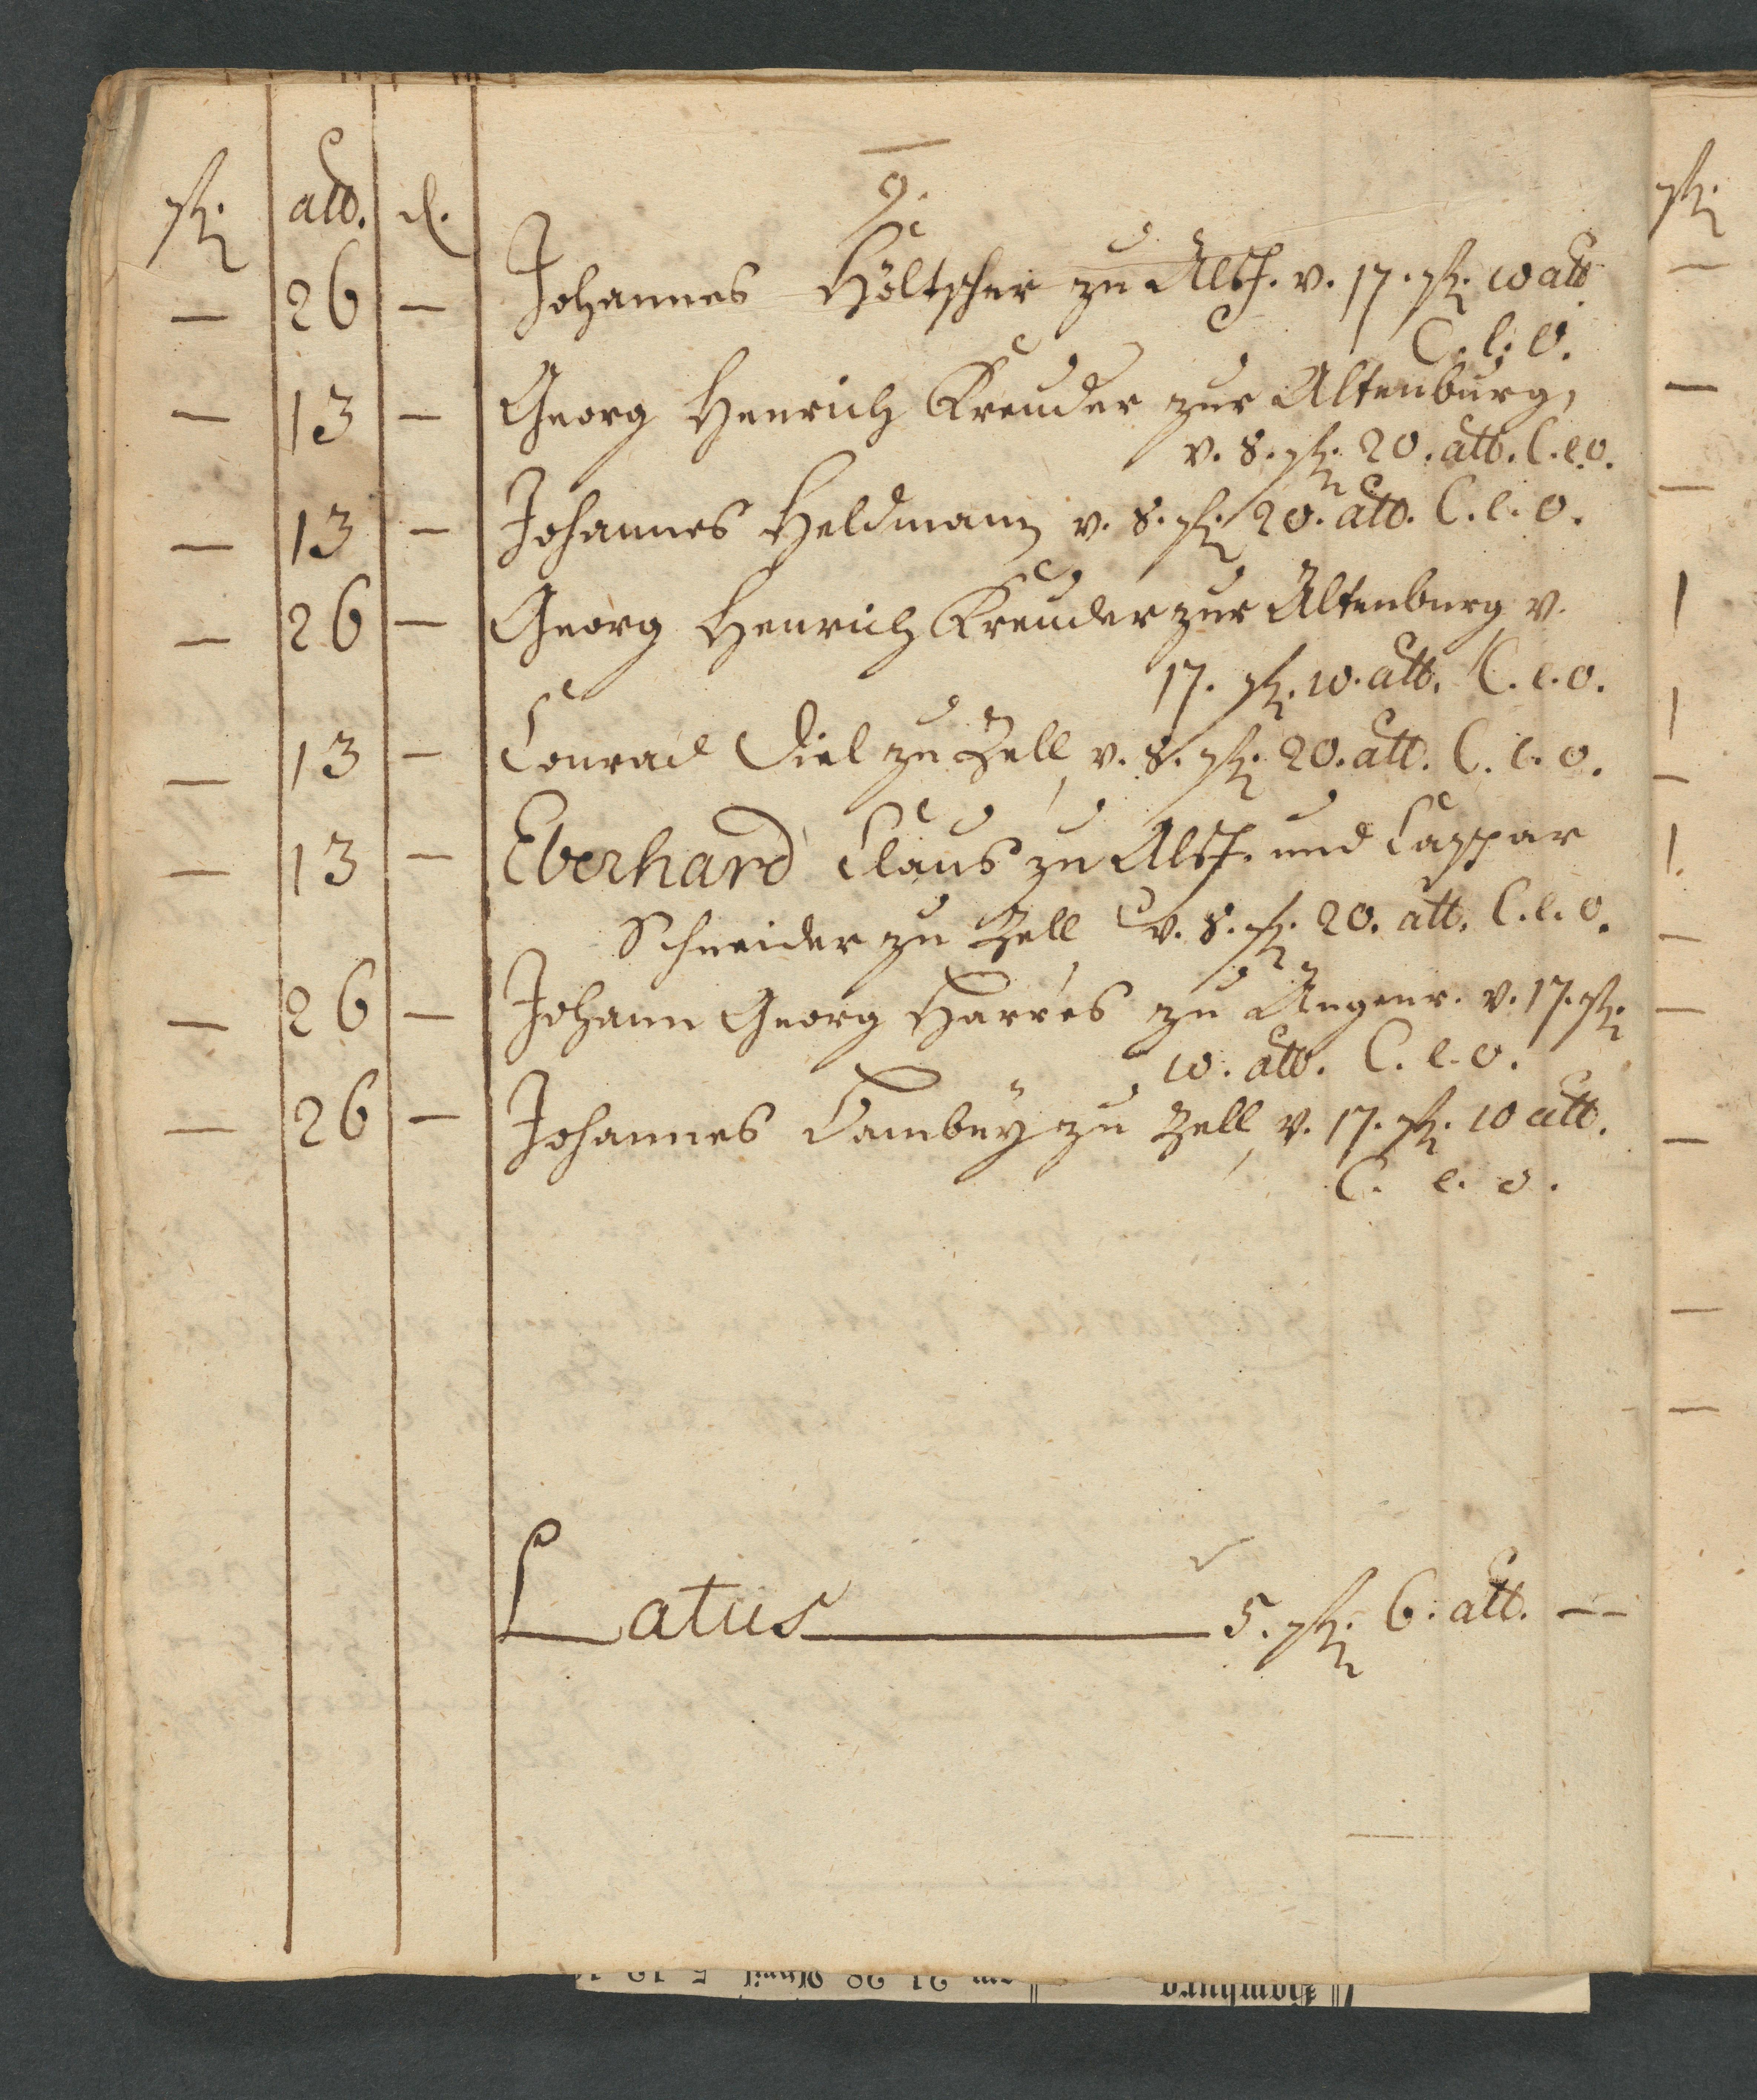 9.
fl. alb. d.
— 26 — Johannes Höltscher zu Alsf. v. 17. fl. 10 alb.
C. l. O.
— 13 — Georg Henrich Kreuder zur Altenburg,
v. 8. fl. 20. alb. C. e. o.
— 13 — Johannes Heldmann v. 8. fl. 20. alb. C. e. o.
— 26 — Georg Henrich Kreuder zur Altenburg v.
17. fl. 10. alb. C. e. o.
— 13 — Conrad Diel zu Zell, v. 8. fl. 20. alb. C. e. o.
— 13 — Eberhard Claus zu Alsf. und Caspar
Schneider zu Zell v. 8. fl. 20. alb. C. e. o.
— 26 — Johann Georg Harres zu Angenr. v. 17. fl.
10. alb. C. e. o.
— 26 — Johannes Dambeÿ zu Zell, v. 17. fl. 10 alb.
C. e. o.
Latus 5. fl. 6. alb. —